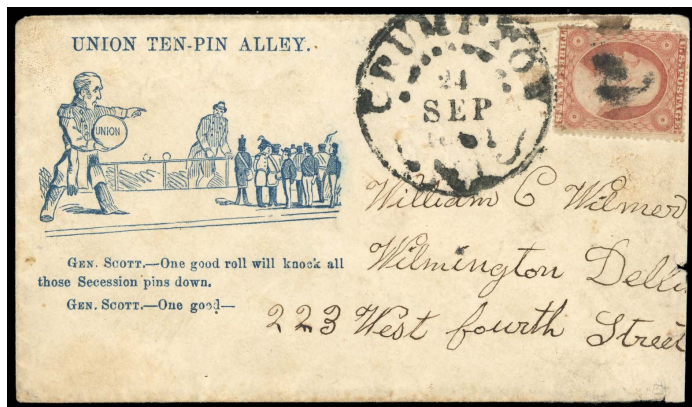 UNION TEN-PIN ALLEY.
UNION
GEN. SCOTT.—One good roll will knock all
those Secession pins down.
GEN. SCOTT.—One good—
CRUMPTON
24
SEP
U.S. POSTAGE
THREE CENTS
William C Wilmer
Wilmington Dell
223 West fourth Street